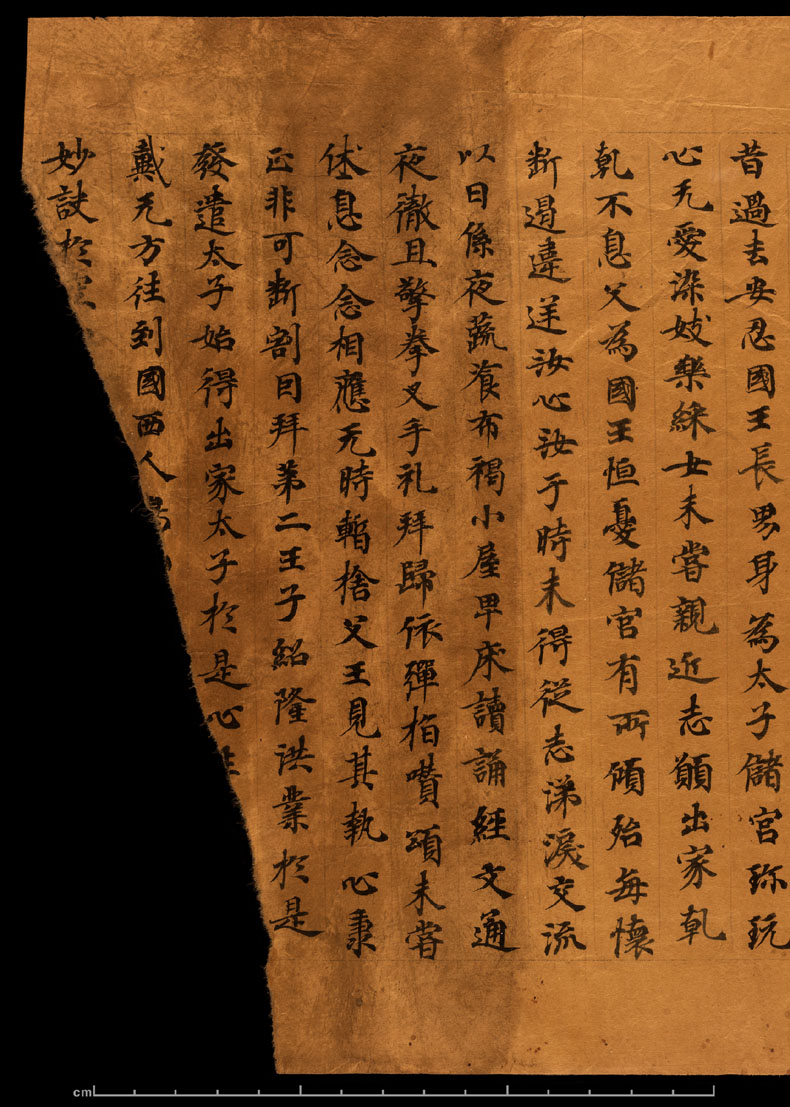 昔過去安忍國王長男身為太子儲宮珎玩
心无愛染妓樂綵女未嘗親近志願出家乹
乹不息父為國王恒憂儲宮有所傾殆每懷
断遏違逆汝心汝于時未得從志涕淚交流
以日係夜蔬飡布褐小屋卑床讀誦經文通
夜徹旦擎拳叉手礼拜歸依彈栢嘖頌未嘗
休息念念相應无時暫捨父王見其執心秉
正非可断割囙拜苐二王子紹隆洪業於是
發遣太子始得出家太子於是心
戴无方往到國西人
妙訣於